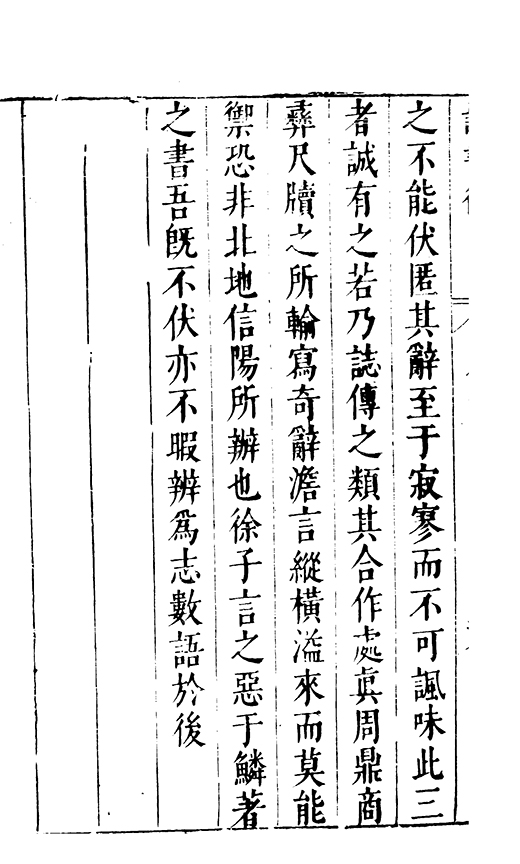 之不能伏匿其辭至于寂寥而不可諷味此三
者誠有之若乃誌傳之類其合作處真周鼎商
彝尺牘之所輸寫奇辭澹言縱橫溢來而莫能
禦恐非北地信陽所辦也徐子言之惡于鱗著
之書吾旣不伏亦不暇辨爲志數語於後